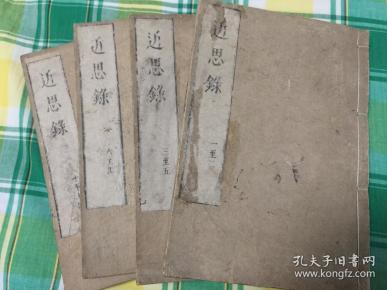 近思錄
近思錄
近思錄
三至五
近思錄
一至
孔夫子旧书网
www.kongfz.com